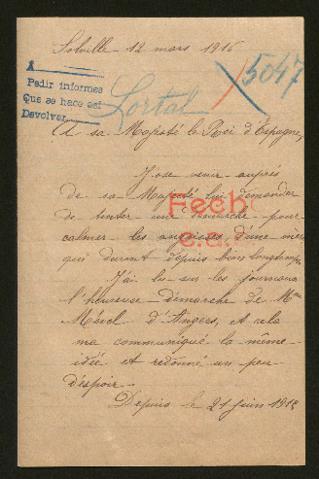 Solville 12 mars 1916
5047
A
Pedir informes
Que se hace así
Devolver
Lortal
A sa Majesté le Roi d'Espagne,
J'ose venir auprès
de sa Majesté lui demander
de tenter une démarche pour
calmer les angoisses d'une mère
qui durent depuis bien longtemps.
Fecho
c.a.
J'ai lu sur les journaux
l'heureuse démarche de Mme
Mérel d'Angers, et cela
ma communiqué la même
idée et redonné un peu
d'espoir.
Depuis le 21 juin 1915